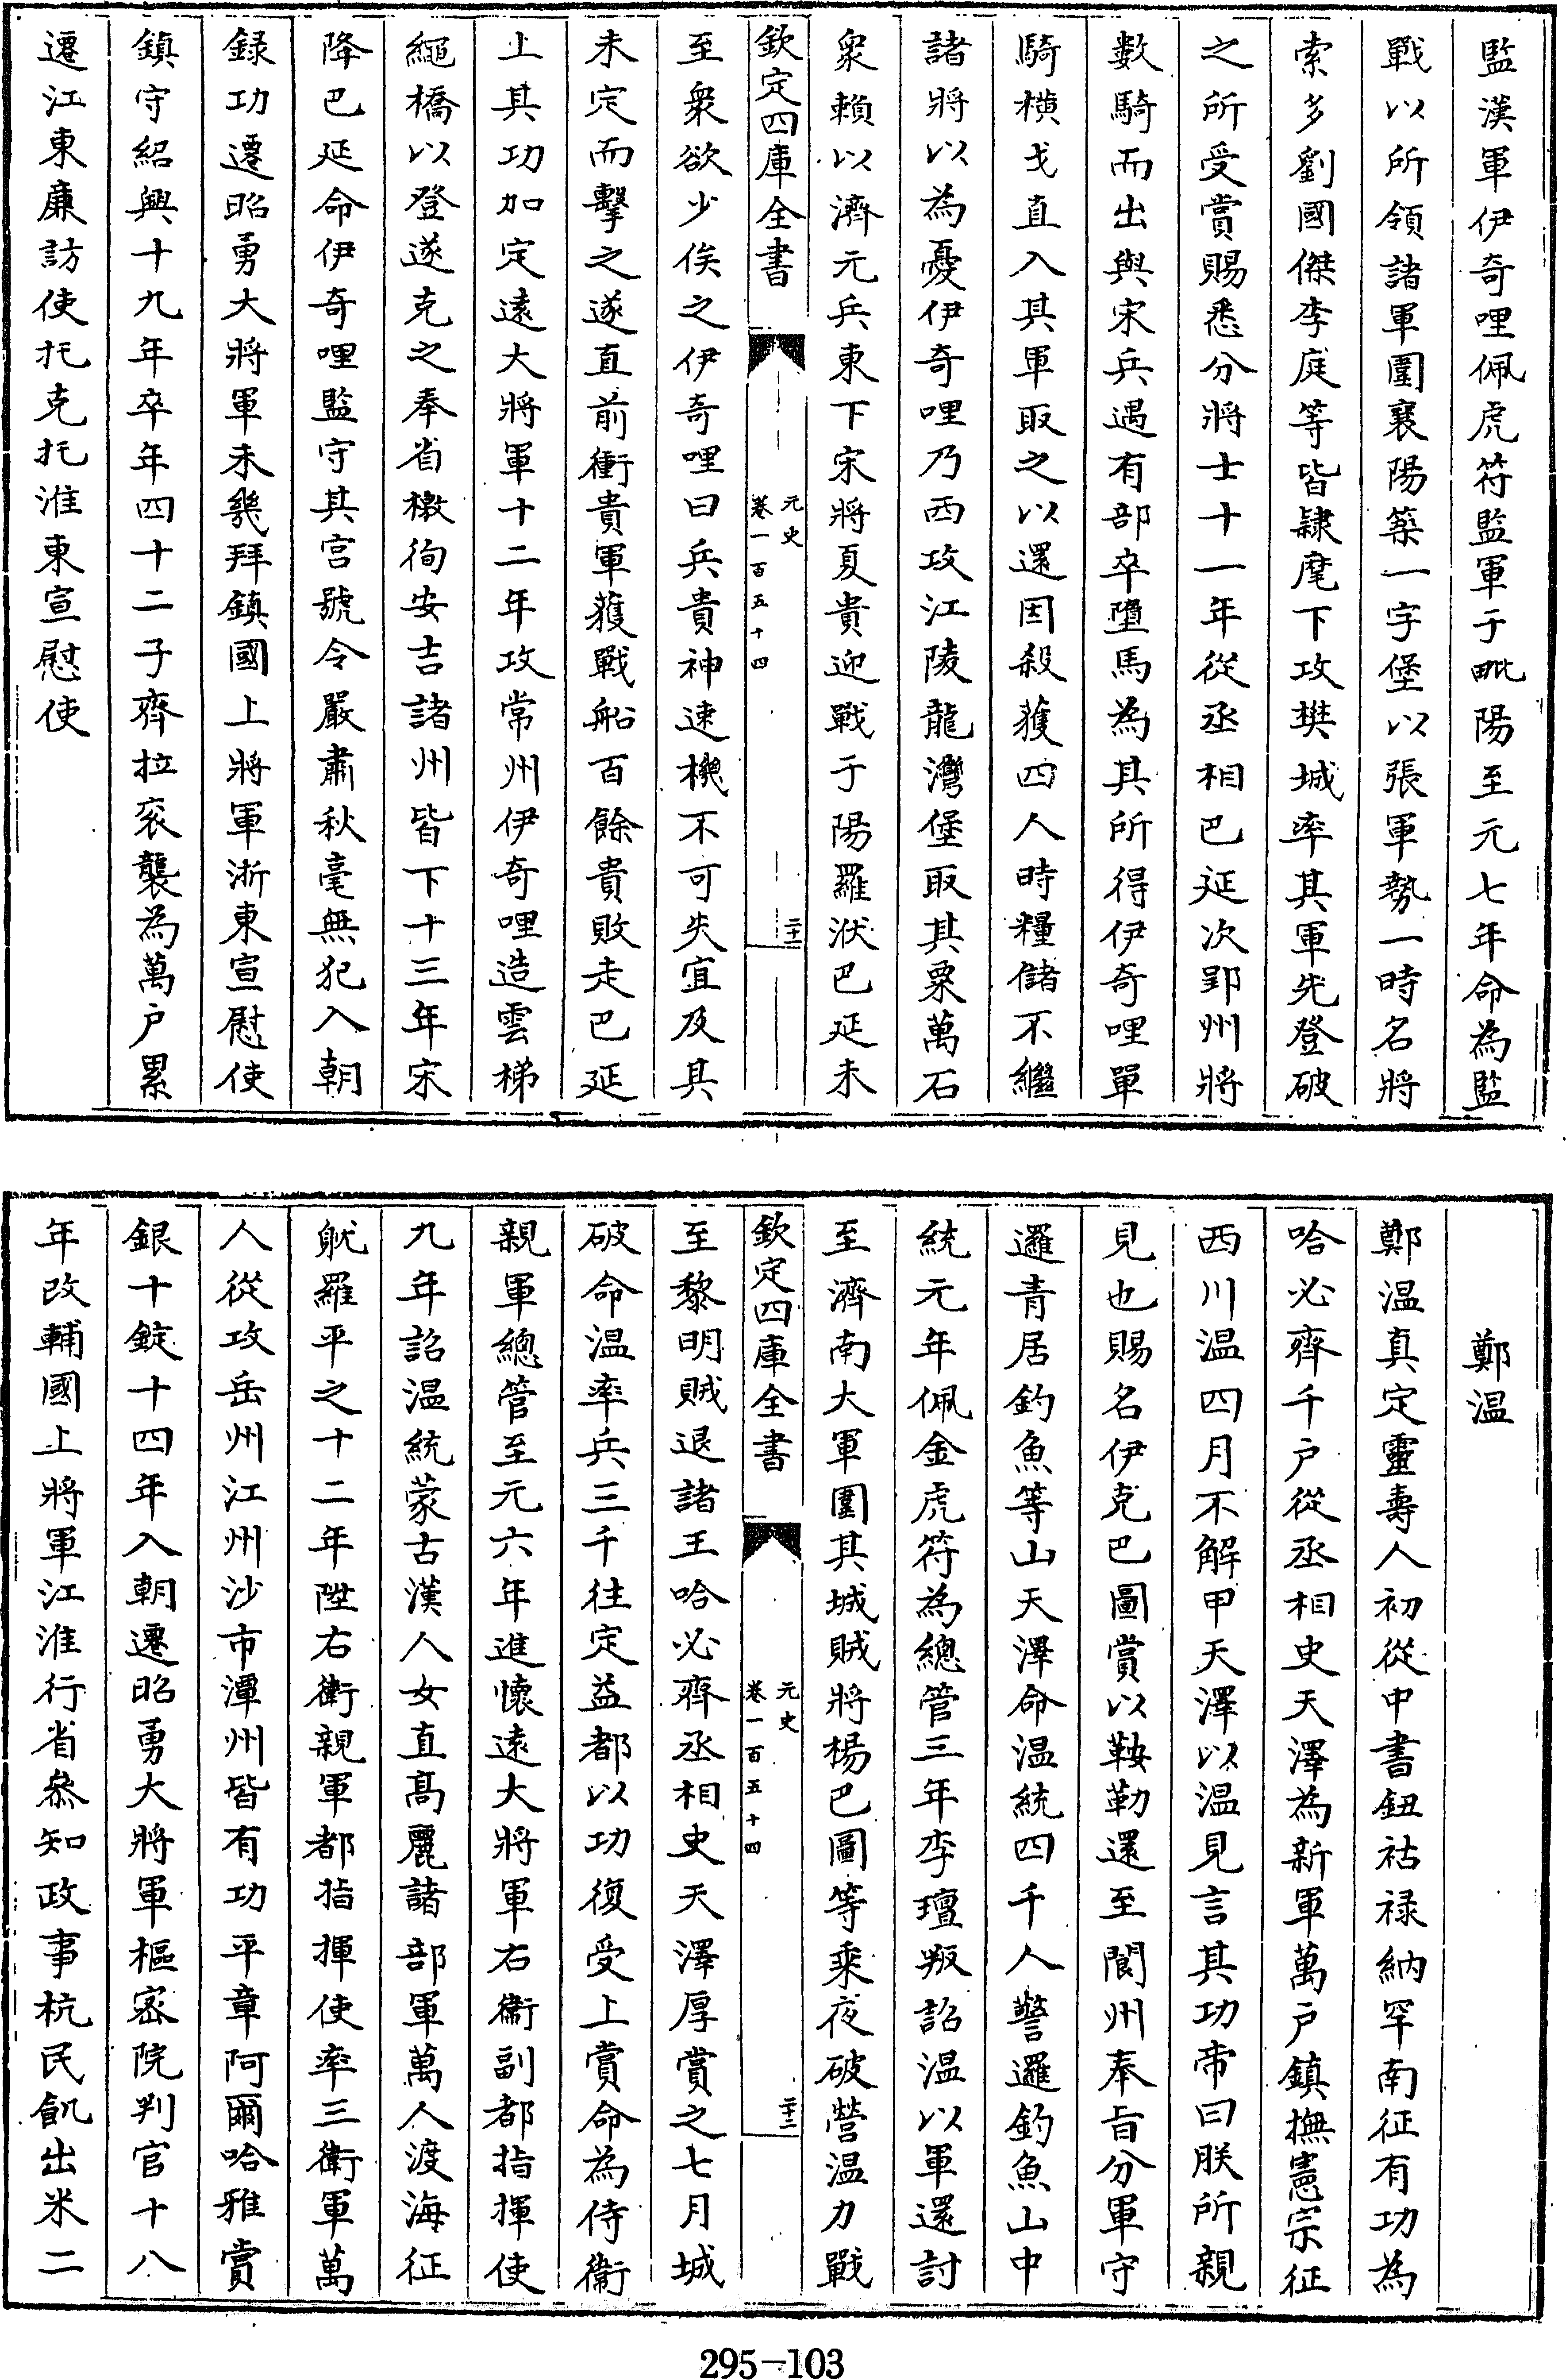 監漢軍伊奇哩佩虎符監軍于毗陽至元七年命為監
戰以所領諸軍圍襄陽築一字堡以張軍勢一時名將
索多劉國傑李庭等皆隸麾下攻樊城率其軍先登破
之所受賞賜悉分將士十一年從丞相巴延次郢州將
數騎而出與宋兵遇有部卒墮馬為其所得伊奇哩單
騎横戈直入其軍取之以還因殺獲四人時糧儲不繼
諸將以為憂伊奇哩乃西攻江陵龍灣堡取其粟萬石
衆賴以濟元兵東下宋將夏貴迎戰于陽羅洑巴延未
欽定四庫全書
元史
卷一百五十四
二十一
至衆欲少俟之伊奇哩曰兵貴神速機不可失宜及其
未定而擊之遂直前衝貴軍獲戰船百餘貴敗走巴延
上其功加定遠大將軍十二年攻常州伊奇哩造雲梯
繩橋以登遂克之奉省檄徇安吉諸州皆下十三年宋
降巴延命伊奇哩監守其宫號令嚴肅秋毫無犯入朝
録功遷昭勇大將軍未幾拜鎮國上將軍浙東宣慰使
鎮守紹興十九年卒年四十二子齊拉衮襲為萬户累
遷江東廉訪使托克托淮東宣慰使
鄭温
鄭温真定靈壽人初從中書鈕祜禄納罕南征有功為
哈必齊千户從丞相史天澤為新軍萬户鎮撫憲宗征
西川温四月不解甲天澤以温見言其功帝曰朕所親
見也賜名伊克巴圖賞以鞍勒還至閬州奉旨分軍守
邏青居釣魚等山天澤命温統四千人警邏釣魚山中
統元年佩金虎符為總管三年李璮叛詔温以軍還討
至濟南大軍圍其城賊將楊巴圖等乘夜破營温力戰
欽定四庫全書
元史
卷一百五十四
二十二
至黎明賊退諸王哈必齊丞相史天澤厚賞之七月城
破命温率兵三千往定益都以功復受上賞命為侍衞
親軍總管至元六年進懷遠大將軍右衞副都指揮使
九年詔温統蒙古漢人女直髙麗諸部軍萬人渡海征
躭羅平之十二年陞右衛親軍都指揮使率三衛軍萬
人從攻岳州江州沙市潭州皆有功平章阿爾哈雅賞
銀十錠十四年入朝遷昭勇大將軍樞密院判官十八
年改輔國上將軍江淮行省叅知政事杭民飢出米二
295-103